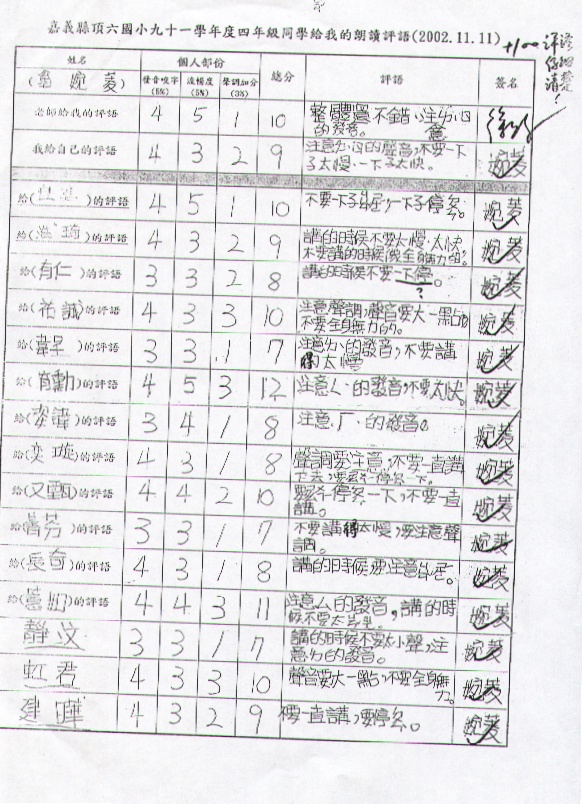 嘉義縣頂六國小九十一學年度四年級同學給我的朗讀評語(2002.11.11)
+100 評你清楚!
姓名 個人部份 總分 評語 簽名
發音咬字(5%) 流暢度(5%) 聲調加分(3%)
老師給我的評語 4 5 1 10 整體還不錯,注意
的發音。
我給自己的評語 4 3 2 9 注意 的聲音,不要一下
子太慢,一下子太快。 婉菱
給( )的評語 4 5 1 10 不要一下子 ,一下子停多。 婉菱
給( 琦)的評語 4 3 2 9 講的時候不要太慢,太快,
不要講的時候 全 無力的。 婉菱
給(有仁)的評語 3 3 2 8 講的時候不要一下停。 婉菱
?
給(祐誠)的評語 4 3 3 10 注意聲調,聲音要大一點,
不要全身無力的。 婉菱
給( )的評語 3 3 1 7 注意ㄉ的發音,不要講
得太慢 婉菱
給(育勳)的評語 4 5 3 12 注意ㄥ的發音,不要太快。 婉菱
給(姿諱)的評語 3 4 1 8 注意ㄏ的發音。 婉菱
給(奕璇)的評語 4 3 1 8 聲調要注意,不要一直講
下去,要 停多一下。 婉菱
給(又甄)的評語 4 4 2 10 要多停多一下,不要一直
講。 婉菱
給( 芬)的評語 3 3 1 7 不要講得太慢,要注意聲
調。 婉菱
給(辰奇)的評語 4 3 1 8 講的時候要注意 。 婉菱
給( )的評語 4 4 3 11 注意ㄙ的發音,講的時
候不要太 。 婉菱
靜汶 3 3 1 7 講的時候不要太小聲,注
意ㄌ的發音。 婉菱
虹君 4 3 3 10 聲音要大一點,不要全身無
力。 婉菱
建曄 4 3 2 9 不要一直講,要停多。 婉菱